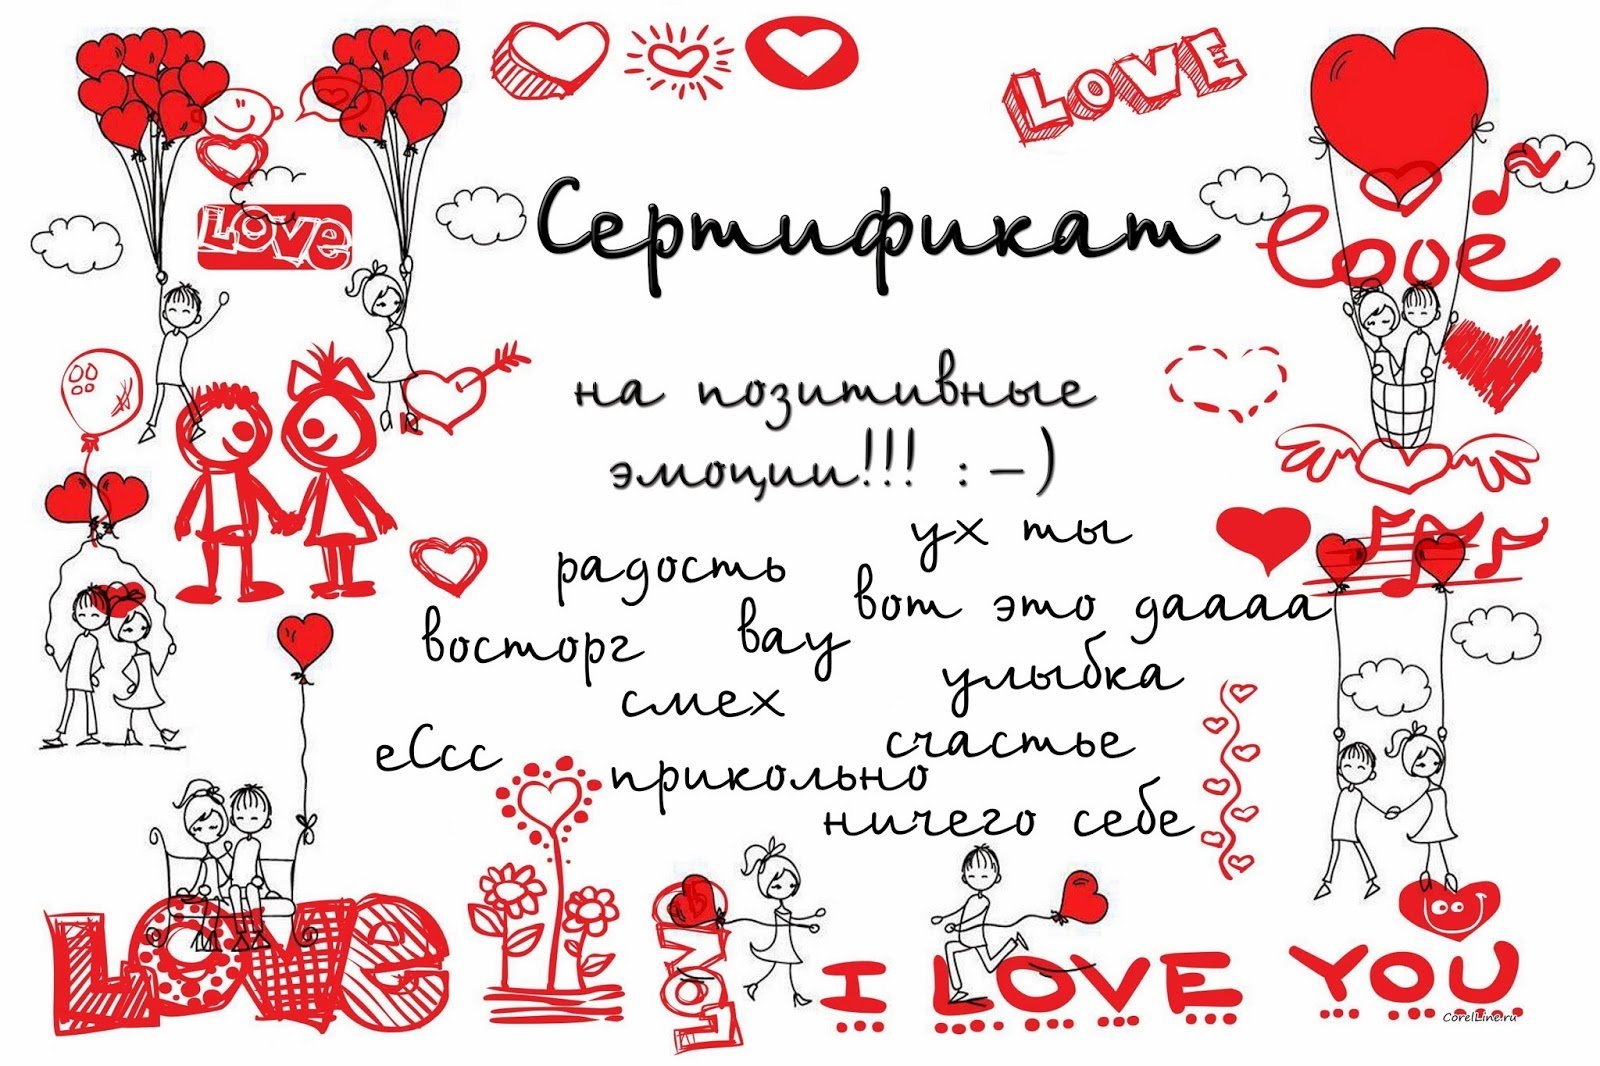 LOVE
Сертификат
LOVE
love
на позитивные
эмоции!!! :-)
ух ты
радость
вот это даааа
восторг
вау
улыбка
смех
счастье
еСсс
прикольно
ничего себе
LOVE
LOVE
I LOVE YOU
CorelLine.ru